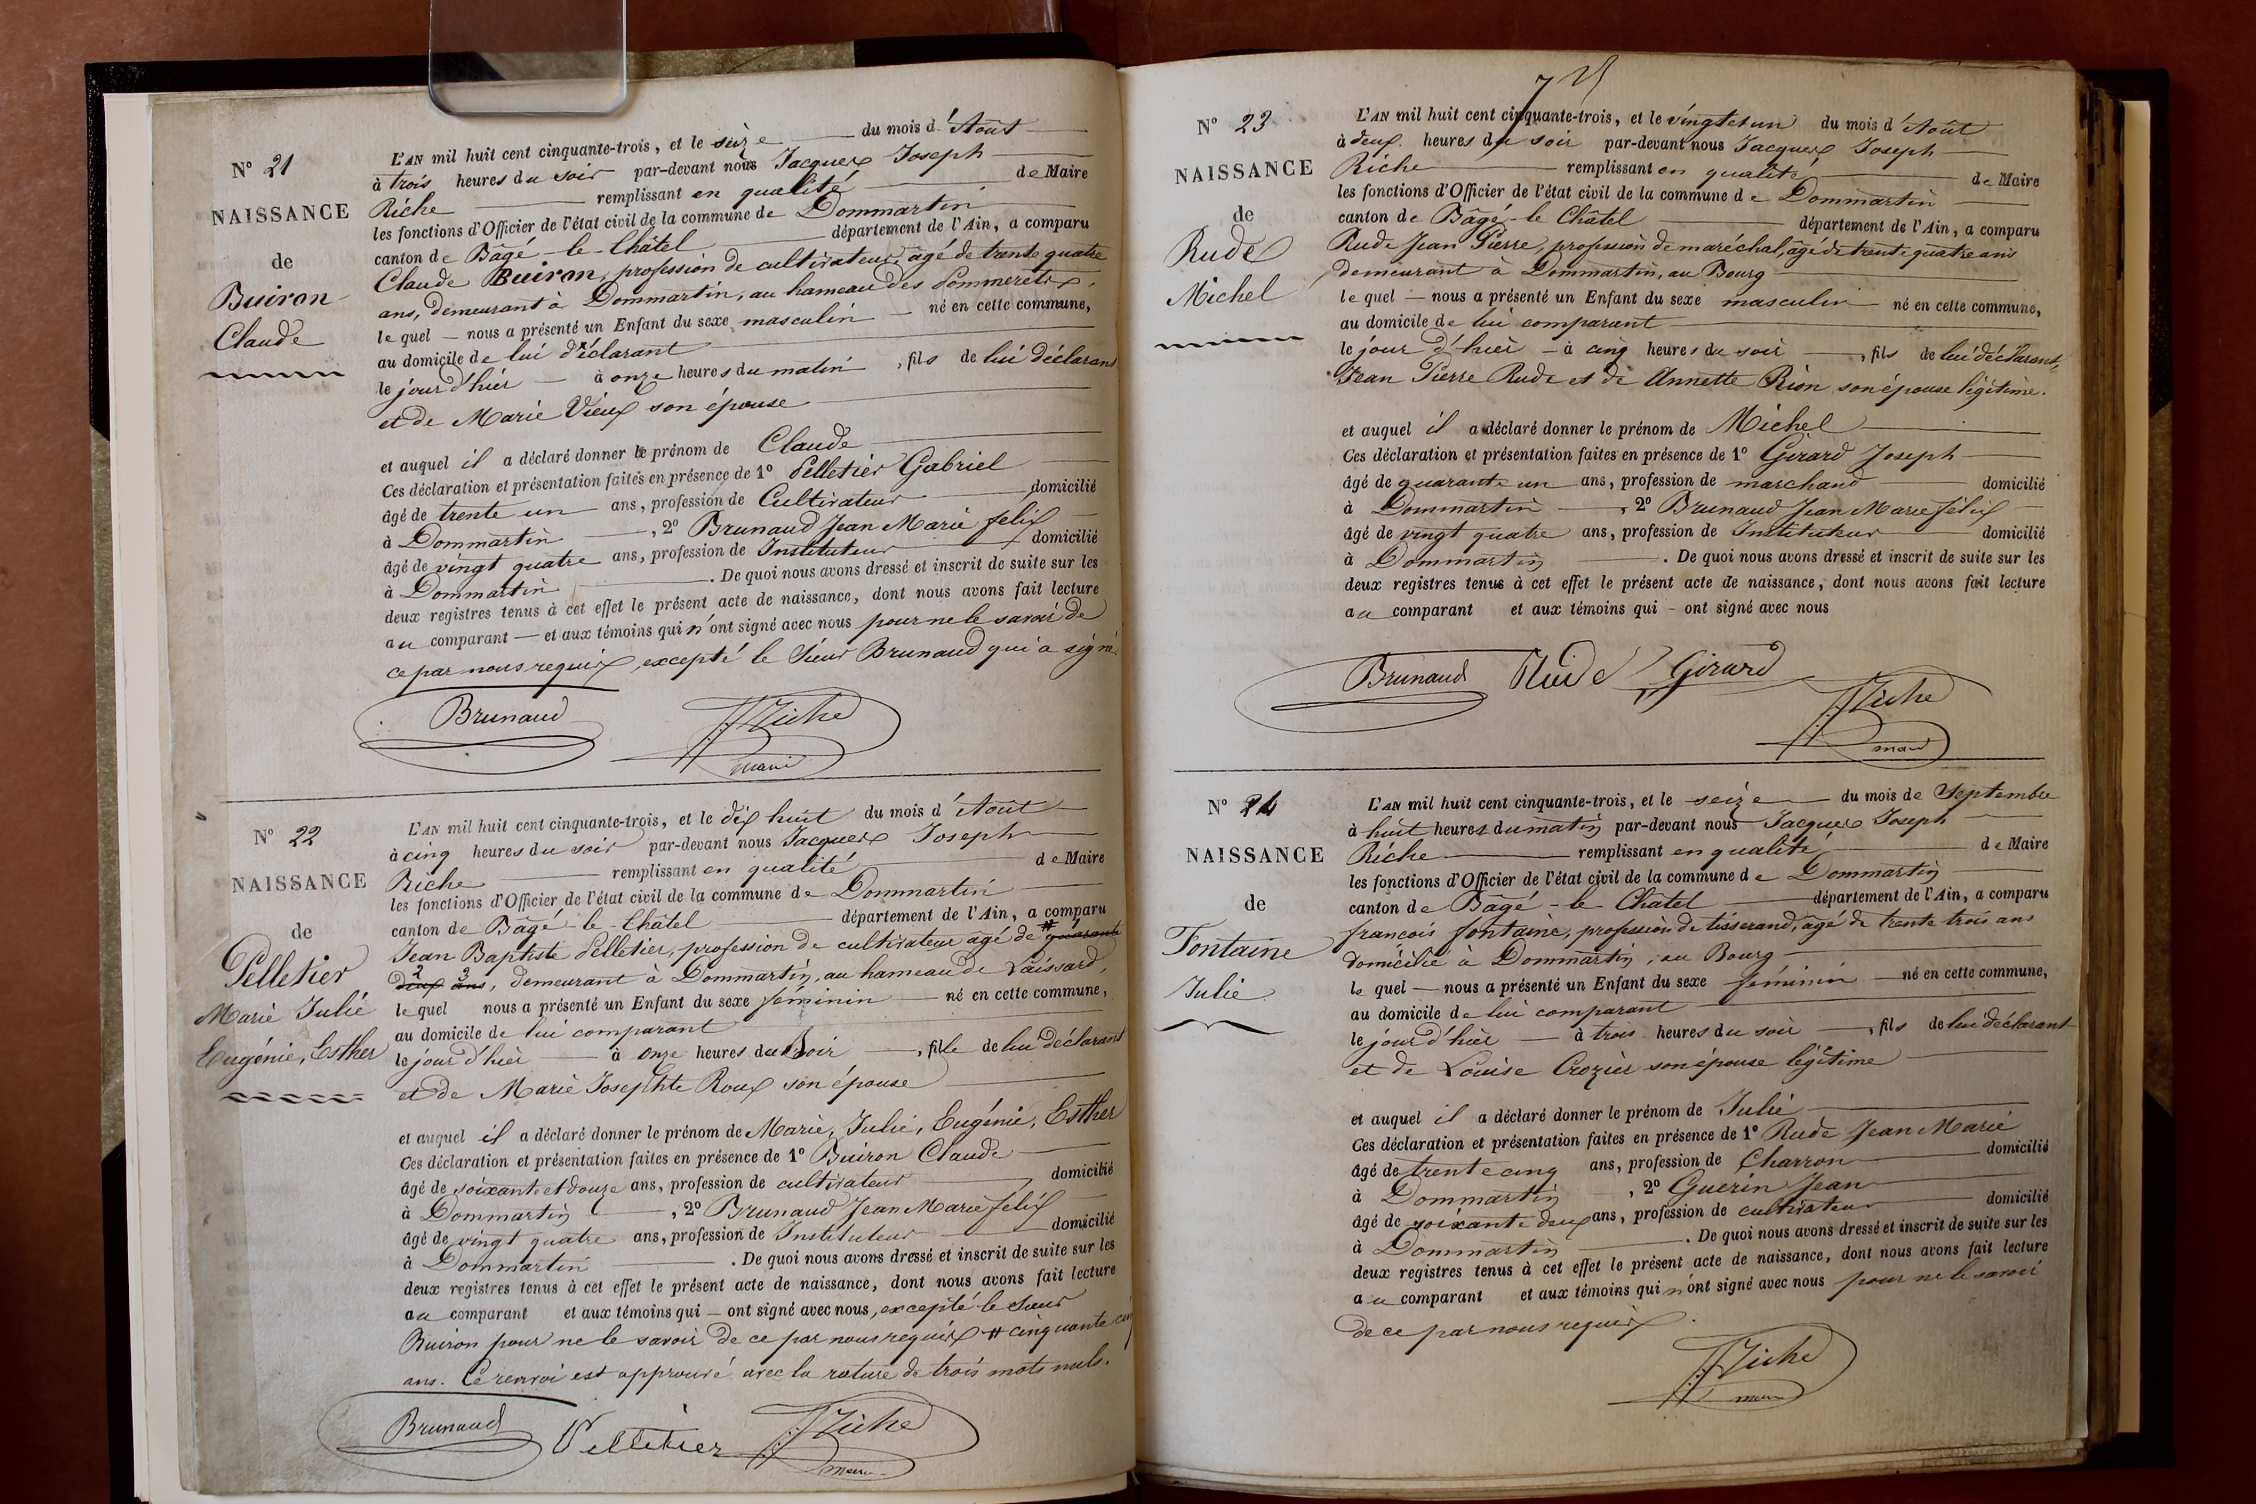 N° 21
NAISSANCE
de
Buiron
Claude
L'AN mil huit cent cinquante-trois, et le seize du mois d'Août
à trois heures du soir par-devant nous Jacques Joseph
Riche remplissant en qualité de Maire
les fonctions d'Officier de l'état civil de la commune de Dommartin
canton de Bâgé-le-Châtel département de l'Ain, a comparu
Claude Buiron, profession de cultivateur, âgé de trente quatre
ans, demeurant à Dommartin, au hameau des Pommerets,
lequel nous a présenté un Enfant du sexe masculin né en cette commune,
au domicile de lui déclarant
le jour d'hier à onze heures du matin, fils de lui déclarant
et de Marie Vieux son épouse
et auquel il a déclaré donner le prénom de Claude
Ces déclaration et présentation faites en présence de 1° Pelletier Gabriel
âgé de trente un ans, profession de Cultivateur domicilié
à Dommartin, 2° Brunaud Jean Marie félix
âgé de vingt quatre ans, profession de Instituteur domicilié
à Dommartin. De quoi nous avons dressé et inscrit de suite sur les
deux registres tenus à cet effet le présent acte de naissance, dont nous avons fait lecture
au comparant et aux témoins qui n'ont signé avec nous pour ne le savoir de
ce par nous requis, excepté le Sieur Brunaud qui a signé
Brunaud JJRiche
maire
N° 22
NAISSANCE
de
Pelletier
Marie Julie
Eugénie, Esther
L'AN mil huit cent cinquante-trois, et le dix huit du mois d'Août
à cinq heures du soir par-devant nous Jacques Joseph
Riche remplissant en qualité de Maire
les fonctions d'Officier de l'état civil de la commune de Dommartin
canton de Bâgé-le-Châtel département de l'Ain, a comparu
Jean Baptiste Pelletier, profession de cultivateur âgé de # quarante
deux ans, demeurant à Dommartin, au hameau de Laissard,
lequel nous a présenté un Enfant du sexe féminin né en cette commune,
au domicile de lui comparant
le jour d'hier à onze heures du soir, fille de lui déclarant
et de Marie Josephte Roux son épouse
et auquel il a déclaré donner le prénom de Marie, Julie, Eugénie, Esther
Ces déclaration et présentation faites en présence de 1° Buiron Claude
âgé de soixante et douze ans, profession de cultivateur domicilié
à Dommartin, 2° Brunaud Jean Marie félix
âgé de vingt quatre ans, profession de Instituteur domicilié
à Dommartin. De quoi nous avons dressé et inscrit de suite sur les
deux registres tenus à cet effet le présent acte de naissance, dont nous avons fait lecture
au comparant et aux témoins qui ont signé avec nous, excepté le Sieur
Buiron pour ne le savoir de ce par nous requis # cinquante cinq
ans. Ce renvoi est approuvé avec la rature de trois mots nuls.
Brunaud Pelletier JJRiche
maire
N° 23
NAISSANCE
de
Rude
Michel
L'AN mil huit cent cinquante-trois, et le vingt et un du mois d'Août
à deux heures du soir par-devant nous Jacques Joseph
Riche remplissant en qualité de Maire
les fonctions d'Officier de l'état civil de la commune de Dommartin
canton de Bâgé-le-Châtel département de l'Ain, a comparu
Rude Jean Pierre, profession de maréchal, âgé de trente quatre ans
demeurant à Dommartin, au Bourg
lequel nous a présenté un Enfant du sexe masculin né en cette commune,
au domicile de lui comparant
le jour d'hier à cinq heures du soir, fils de lui déclarant,
Jean Pierre Rude et de Annette Rion son épouse légitime.
et auquel il a déclaré donner le prénom de Michel
Ces déclaration et présentation faites en présence de 1° Girard Joseph
âgé de quarante un ans, profession de marchand domicilié
à Dommartin, 2° Brunaud Jean Marie félix
âgé de vingt quatre ans, profession de Instituteur domicilié
à Dommartin. De quoi nous avons dressé et inscrit de suite sur les
deux registres tenus à cet effet le présent acte de naissance, dont nous avons fait lecture
au comparant et aux témoins qui ont signé avec nous
Brunaud Rude Girard
JJRiche
maire
N° 24
NAISSANCE
de
Fontaine
Julie
L'AN mil huit cent cinquante-trois, et le seize du mois de Septembre
à huit heures du matin par-devant nous Jacques Joseph
Riche remplissant en qualité de Maire
les fonctions d'Officier de l'état civil de la commune de Dommartin
canton de Bâgé-le-Chatel département de l'Ain, a comparu
francois fontaine, profession de tisserand, âgé de trente trois ans
domicilié à Dommartin, au Bourg
lequel nous a présenté un Enfant du sexe féminin né en cette commune,
au domicile de lui comparant
le jour d'hier à trois heures du soir, fils de lui déclarant
et de Louise Crozier son épouse légitime
et auquel il a déclaré donner le prénom de Julie
Ces déclaration et présentation faites en présence de 1° Rude Jean Marie
âgé de trente cinq ans, profession de Charron domicilié
à Dommartin, 2° Guerin Jean
âgé de soixante deux ans, profession de cultivateur domicilié
à Dommartin. De quoi nous avons dressé et inscrit de suite sur les
deux registres tenus à cet effet le présent acte de naissance, dont nous avons fait lecture
au comparant et aux témoins qui n'ont signé avec nous pour ne le savoir
de ce par nous requis.
JJRiche
maire